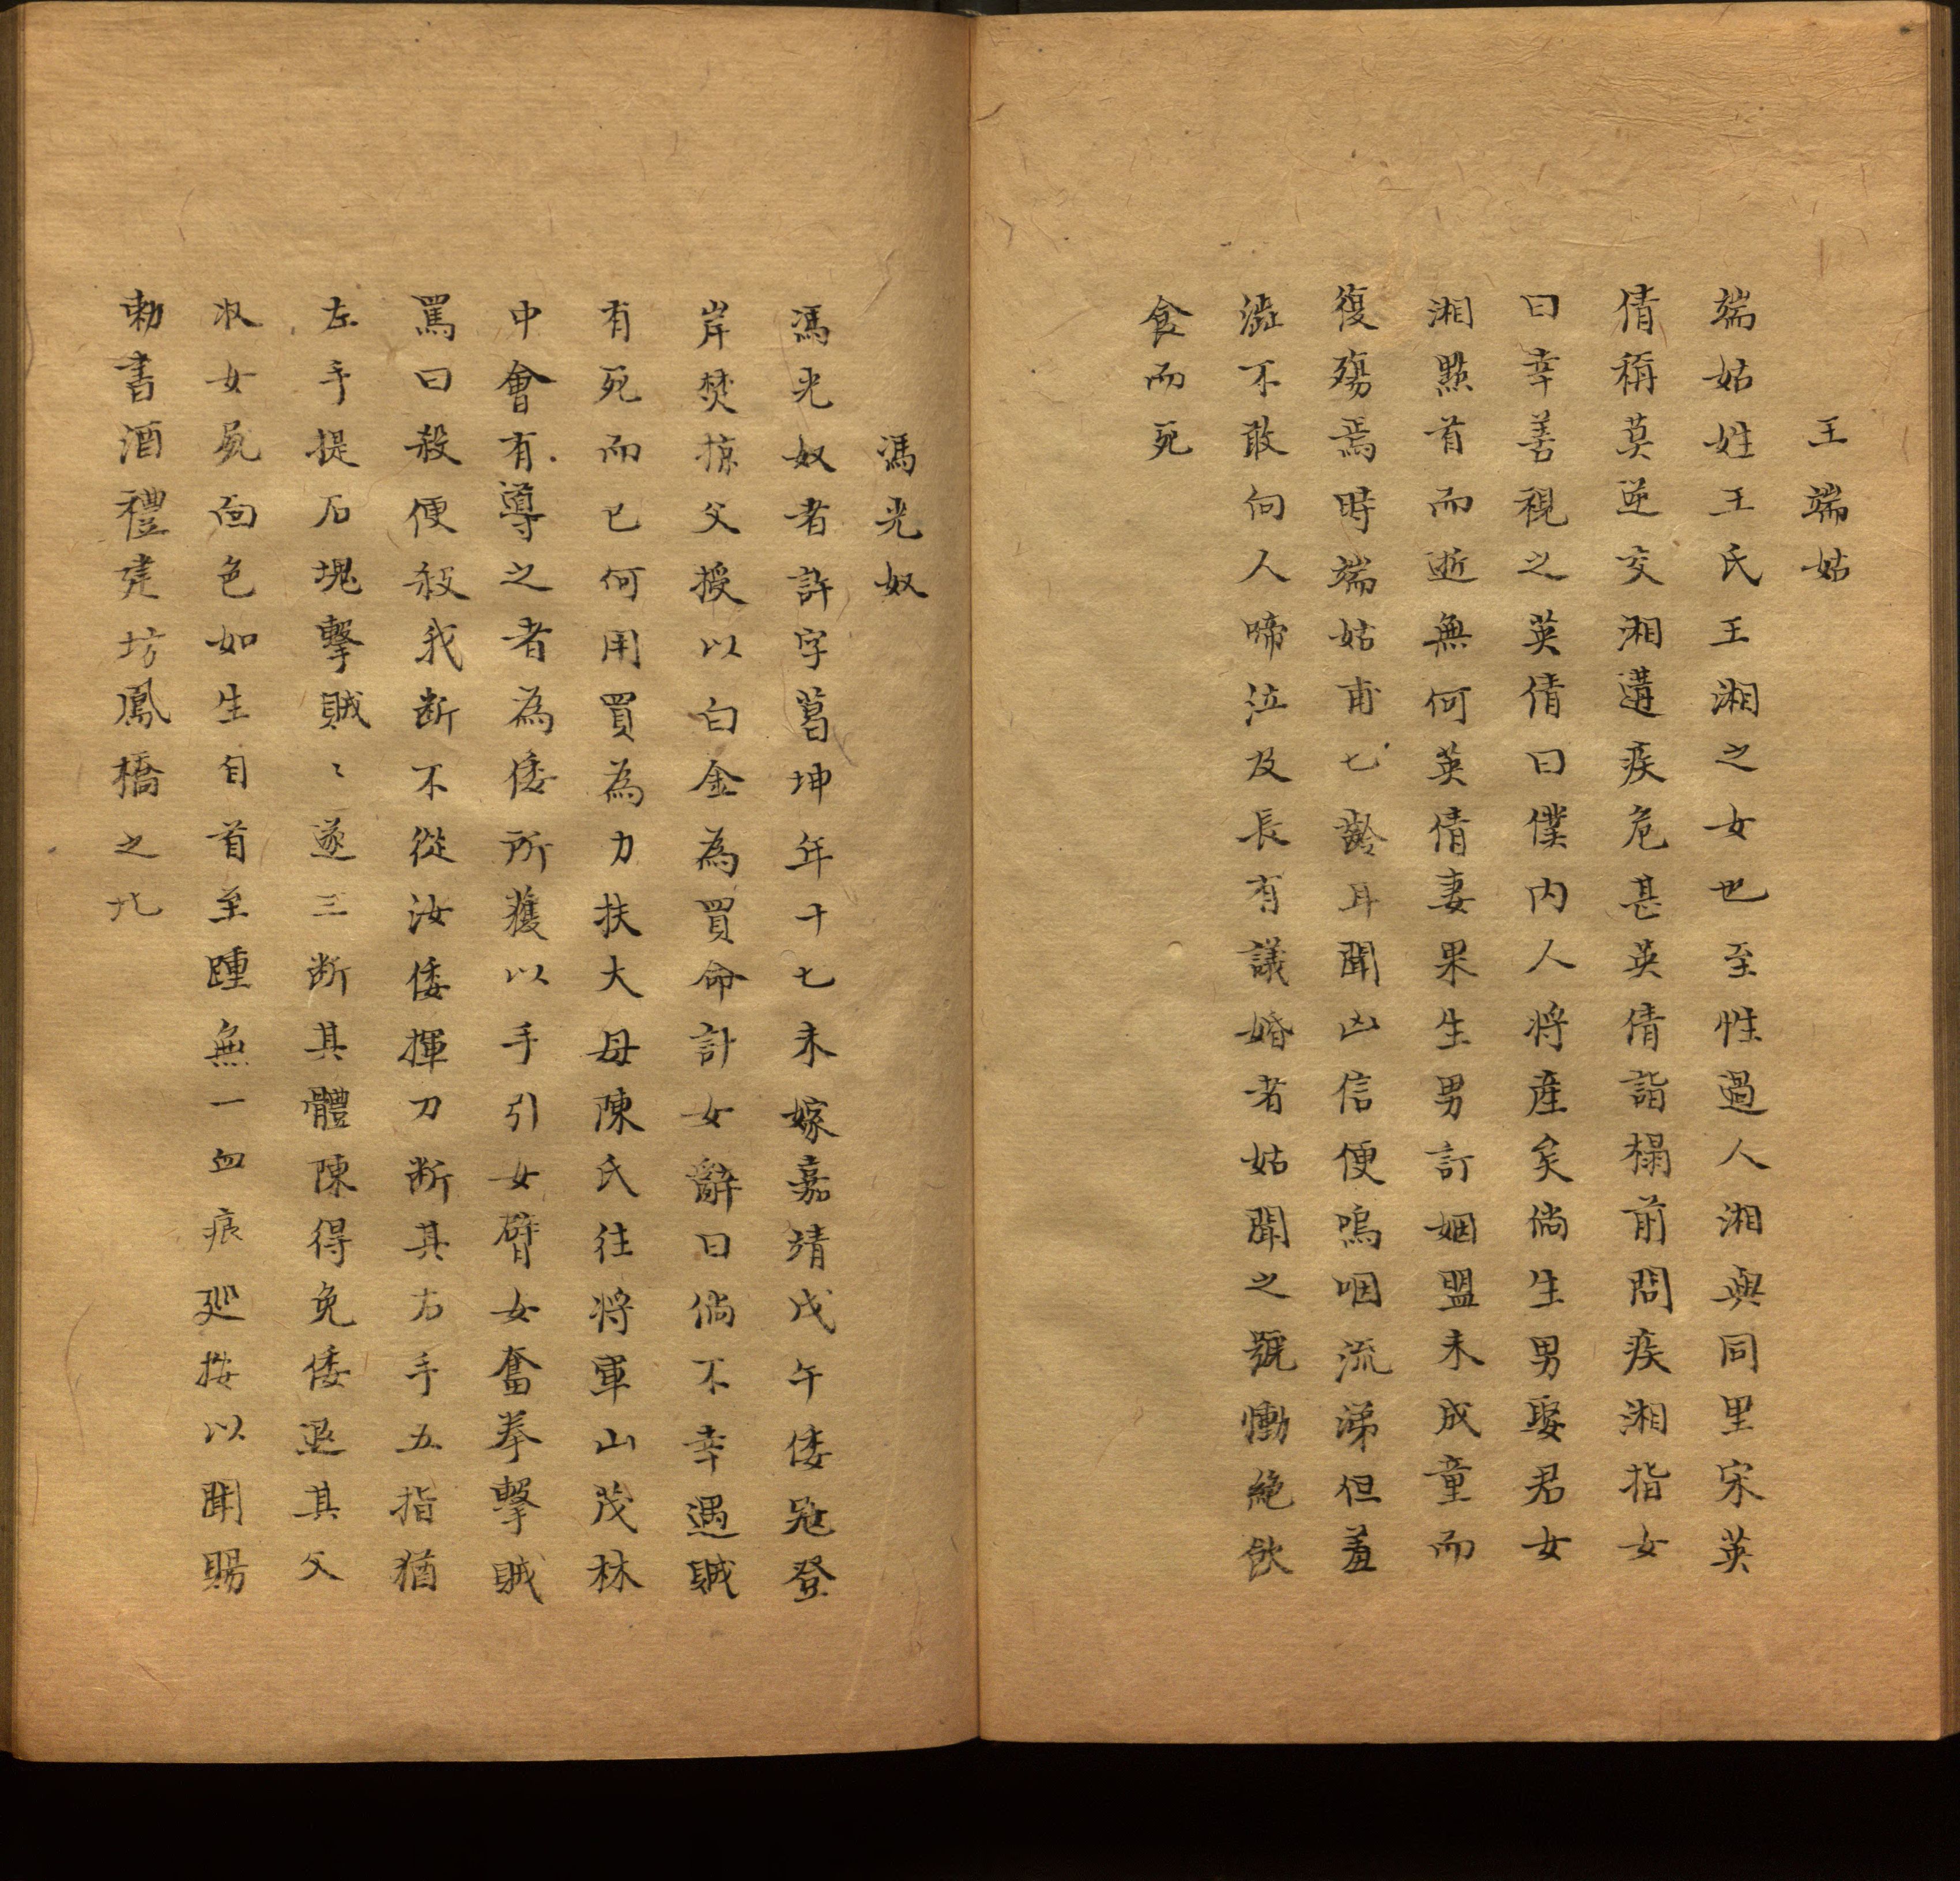 王端姑
端姑姓王氏王湘之女也至性過人湘與同里宋英
倩稱莫逆交湘遘疾危甚英倩詣榻前問疾湘指女
曰幸善視之英倩曰僕内人将産矣倘生男娶君女
湘㸃首而逝無何英倩妻果生男訂姻盟未成童而
復殤焉時端姑甫七齡耳聞凶信便嗚咽流涕但羞
澁不敢向人啼泣及長有議婚者姑聞之號慟絶飲
食而死
馮光奴
馮光奴者許字葛坤年十七未嫁嘉靖戊午倭冦登
岸焚掠父授以白金為買命計女辭曰倘不幸遇賊
有死而已何用買為力扶大母陳氏往将軍山茂林
中會有導之者為倭所獲以手引女臂女奮拳擊賊
罵曰殺便殺我断不從汝倭揮刀断其右手五指猶
左手提石塊擊賊〻遂三断其體陳得免倭退其父
收女屍面色如生自首至踵無一血痕廵按以聞賜
勅書酒禮建坊鳳橋之北